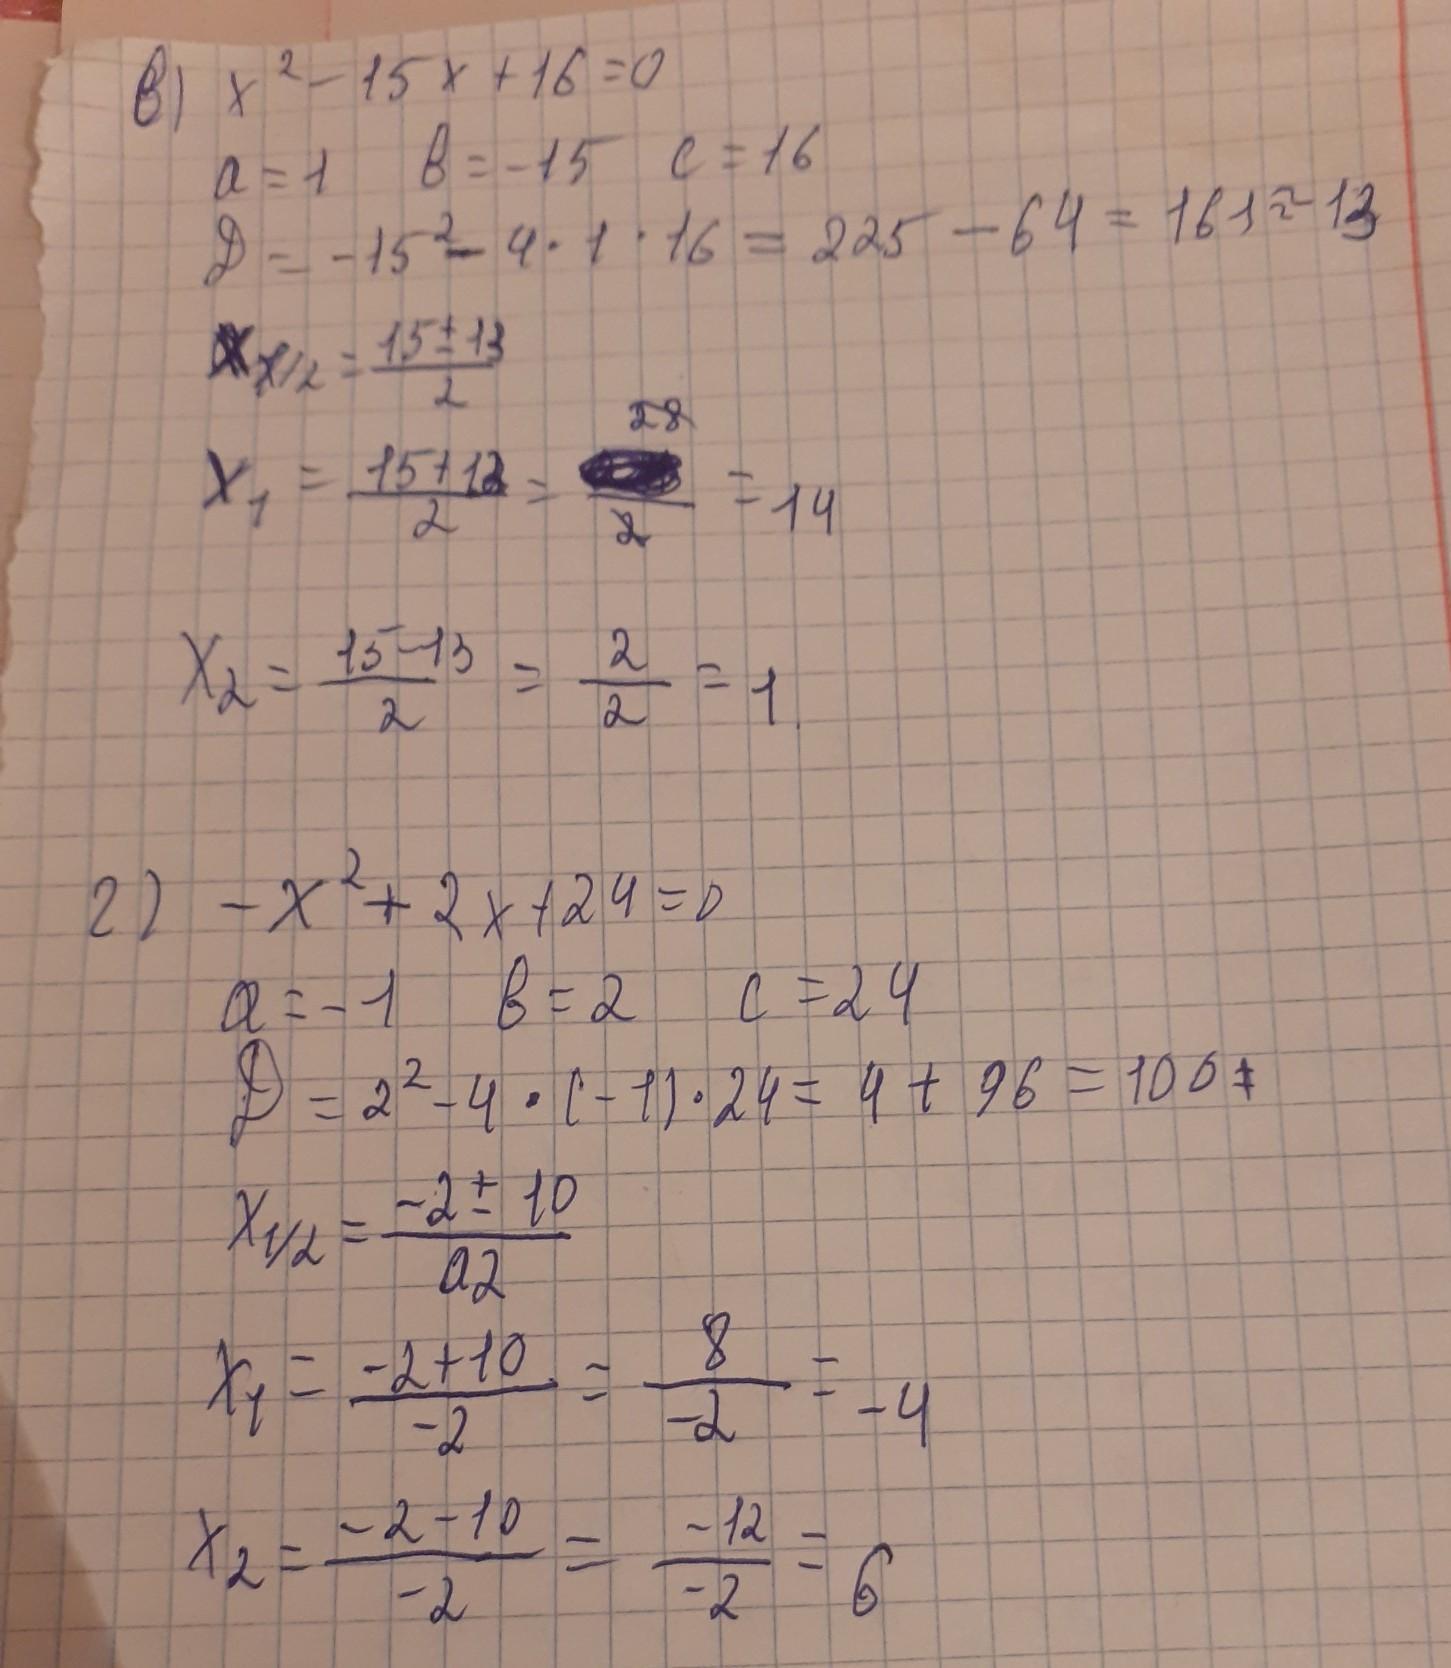 в) x² - 15x + 16 = 0
a = 1 b = -15 c = 16
D = -15² - 4 · 1 · 16 = 225 - 64 = 161 ≈ 13
x1/2 = (15 ± 13)/2
x₁ = (15 + 13)/2 = 28/2 = 14
x₂ = (15 - 13)/2 = 2/2 = 1
г) -x² + 2x + 24 = 0
a = -1 b = 2 c = 24
D = 2² - 4 · (-1) · 24 = 4 + 96 = 100
x1/2 = (-2 ± 10)/a2
x₁ = (-2 + 10)/-2 = 8/-2 = -4
x₂ = (-2 - 10)/-2 = -12/-2 = 6